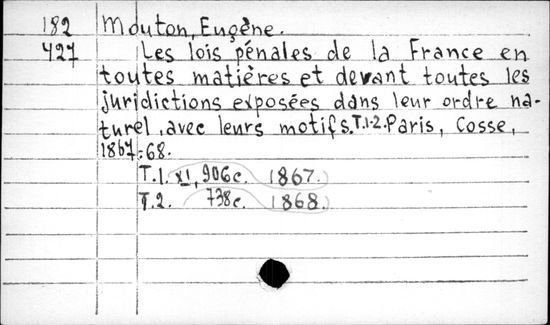 182 Mouton, Eugène.
427 Les lois pénales de la France en
toutes matières et devant toutes les
juridictions exposées dans leur ordre na-
turel, avec leurs motifs. T.1-2. Paris, Cosse,
1867-68.
T.1. XI, 906c. 1867.
T.2. 738c. 1868.